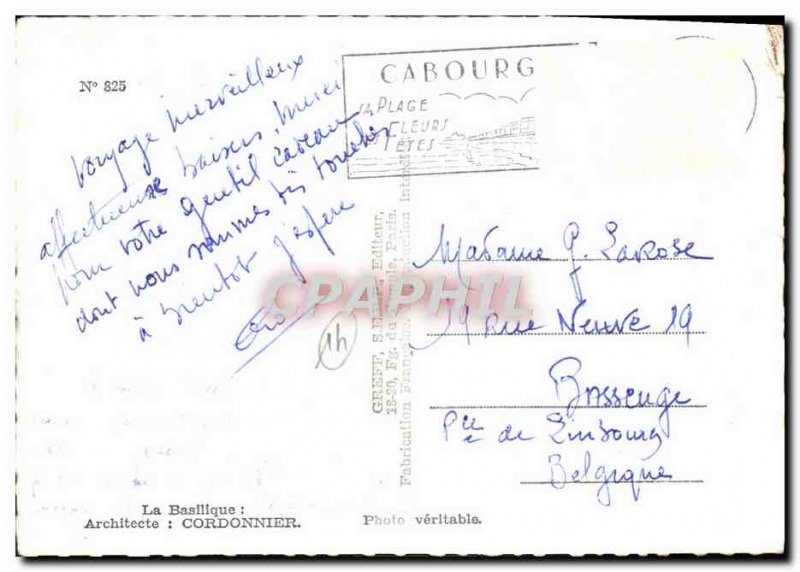 N° 825
Voyage merveilleux
affectueuse baisers, merci
pour votre gentil cadeau
dont nous sommes très touchés
à bientot j'espère
1h
CABOURG
SA PLAGE
SES FLEURS
SES FÊTES
GREFF, S.E.P.P., Editeur,
18-20, Fg. du Temple, Paris.
Fabrication Française. Reproduction interdite
CPAPHIL
Madame G. Larose
rue Neuve 19
Bassenge
Pce de Limbourg
Belgique
La Basilique :
Architecte : CORDONNIER.
Photo véritable.